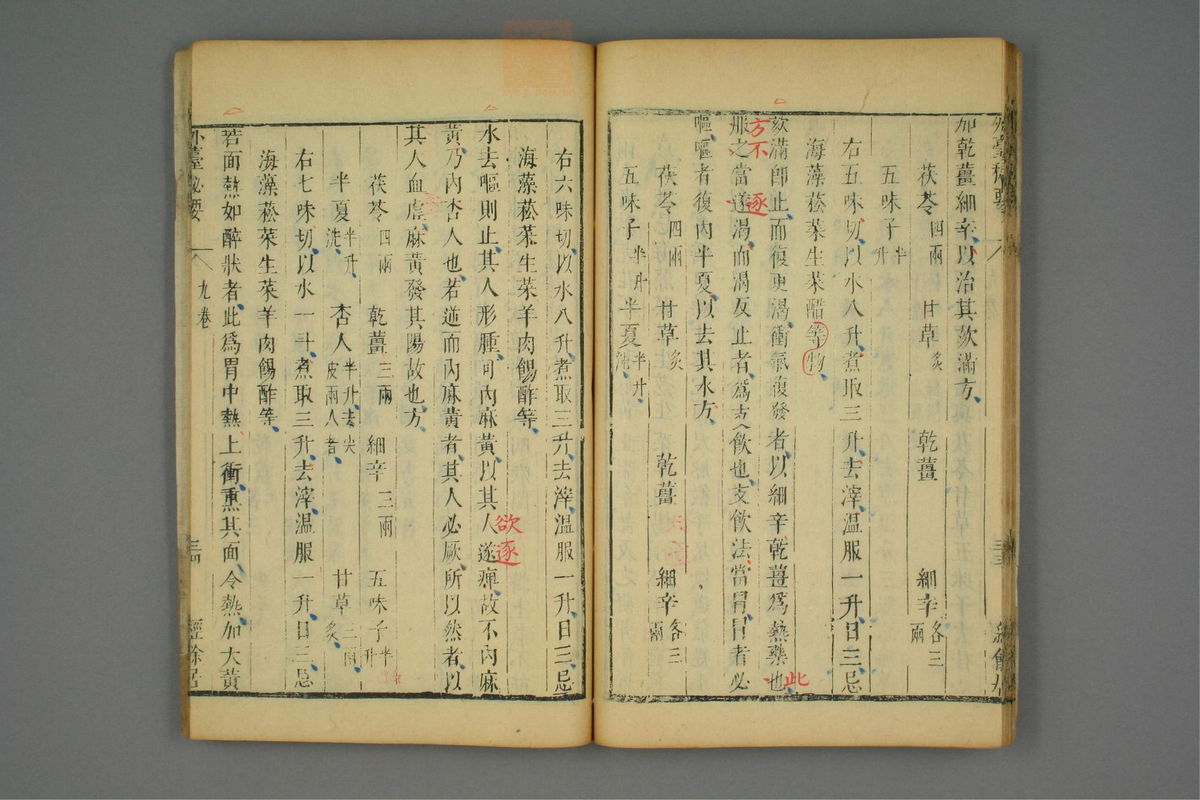 加乾薑細辛以治其欬滿方
茯苓四兩 甘草炙 乾薑 細辛各三兩
五味子半升
右五味切以水八升煮取三升去滓溫服一升日三忌
海藻菘菜生菜醋等物
欬滿即止而復更渴衝氣復發者以細辛乾薑爲熱藥也此
方不
服之當遂渴而渴反止者爲支飲也支飲法當冒冒者必
逐
嘔嘔者復內半夏以去其水方
茯苓四兩 甘草炙 乾薑 細辛各三兩
五味子半升 半夏半升洗
右六味切以水八升煮取三升去滓溫服一升日三忌
海藻菘菜生菜羊肉餳酢等
水去嘔則止其人形腫可內麻黃以其人遂痺故不內麻
欲逐
黃乃內杏人也若逆而內麻黃者其人必厥所以然者以
其人血虛麻黃發其陽故也方
茯苓四兩 乾薑三兩 細辛三兩 五味子半升
半夏半升洗 杏人半升去尖皮兩人者 甘草三兩炙
右七味切以水一斗煮取三升去滓溫服一升日三忌
海藻菘菜生菜羊肉餳酢等
若面熱如醉狀者此爲胃中熱上衝熏其面令熱加大黃
外臺祕要 九卷 三四 經餘居